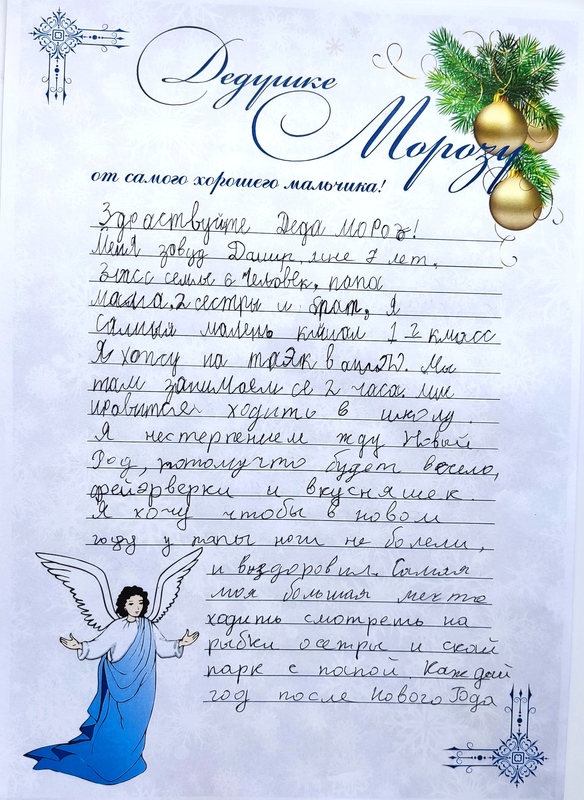 Дедушке
Морозу
от самого хорошего мальчика!
Здраствуйте Деда мороз!
Меня зовуд Дамир, мне 7 лет,
семьы 6 человек, папа
мама, 2 сестры и брат, Я
самый малень 1 2 класс
Я на в Мы
там занимаем се 2 часа. мне
нравится ходить в школу.
Я нестерпением жду Новый
Год, потомучто будет весело,
фейэрверки и вкусняшек.
Я хочу чтобы в новом
году у папы ноги не болели,
и выздоровил. Самая
моя большая мечта
ходить смотреть на
рыбки осетры и скай
парк с папой. Каждый
год после Нового Года